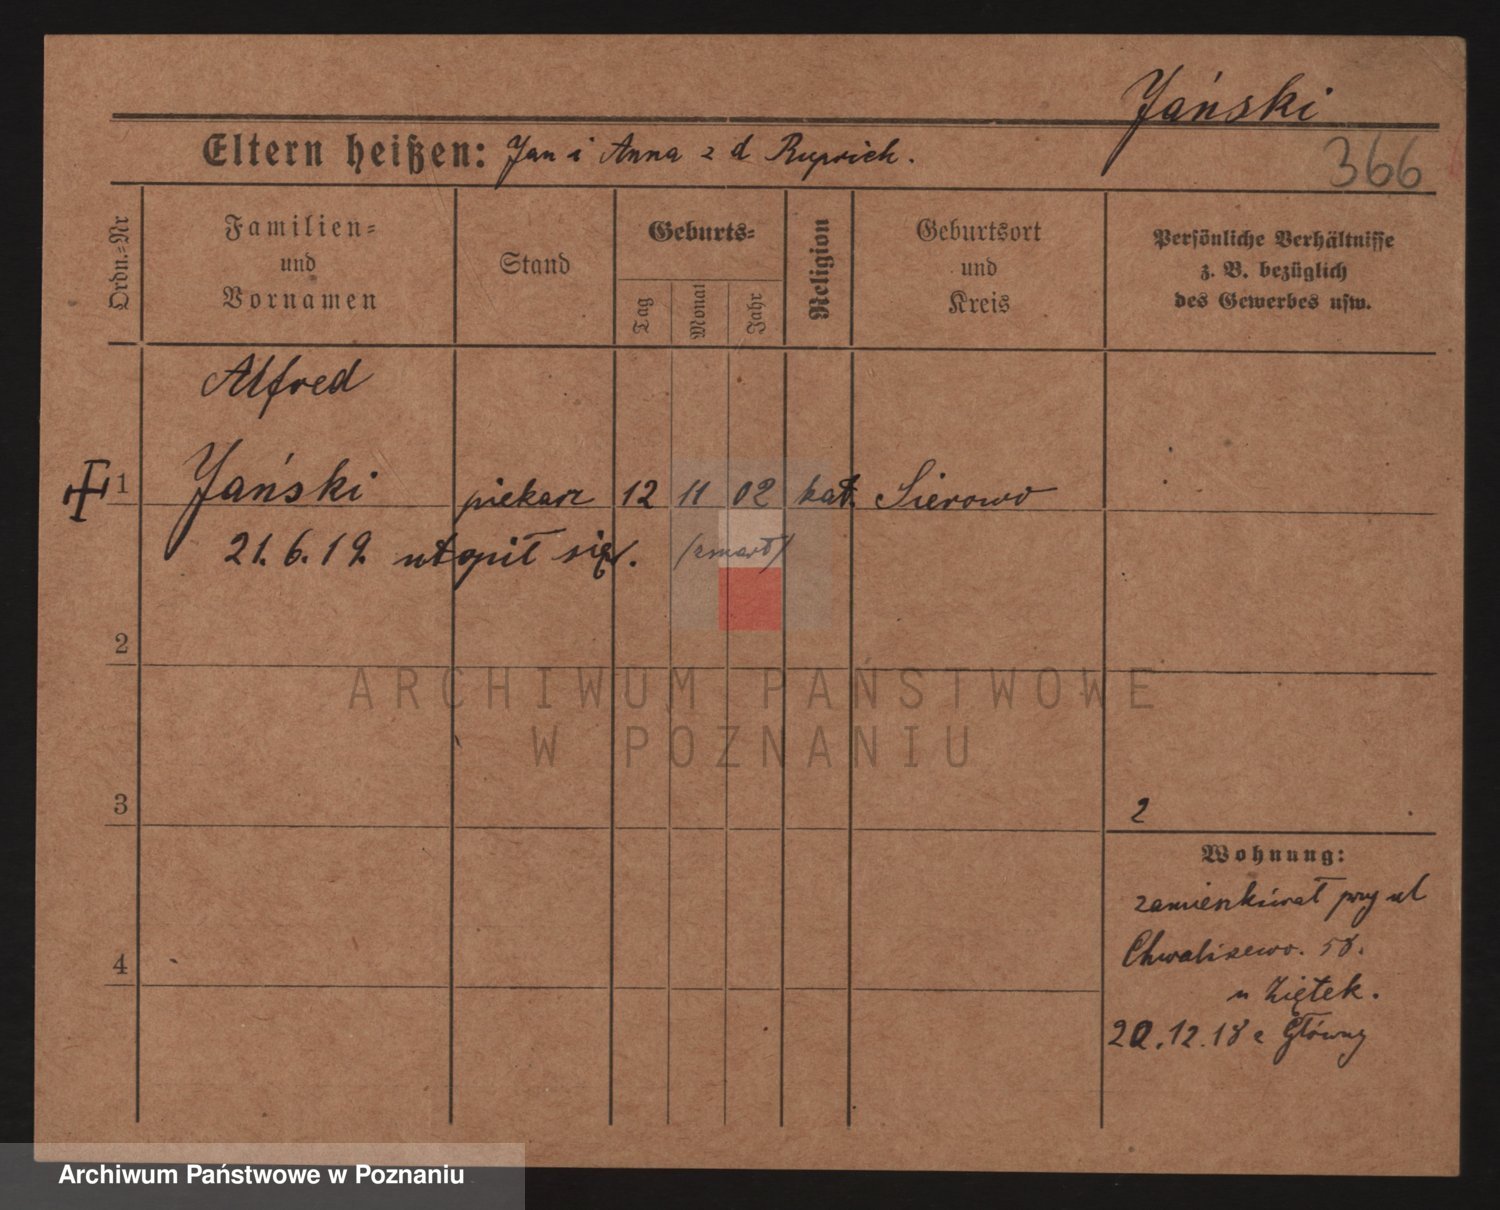 Jański
Eltern heißen: Jan i Anna z d Ruprich.
366
Ordn.=Nr
Familien=
und
Vornamen
Stand
Geburts=
Tag
Monat
Jahr
Religion
Geburtsort
und
Kreis
Persönliche Verhältnisse
z. B. bezüglich
des Gewerbes usw.
Alfred
1 Jański piekarz 12 11 02 kat. Sierowo
21.6.19. utopił się. (zmarł)
2
3
2
4
Wohnung:
zamieszkiwał przy ul
Chwaliszewo. 58.
u Ziętek.
20.12.18 z Główny
ARCHIWUM PAŃSTWOWE
W POZNANIU
Archiwum Państwowe w Poznaniu